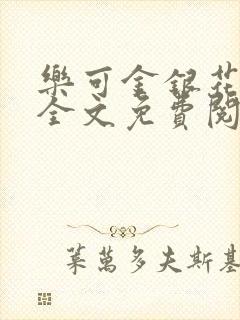 樂可金銀花
全文免費閱
葉萬多夫斯基